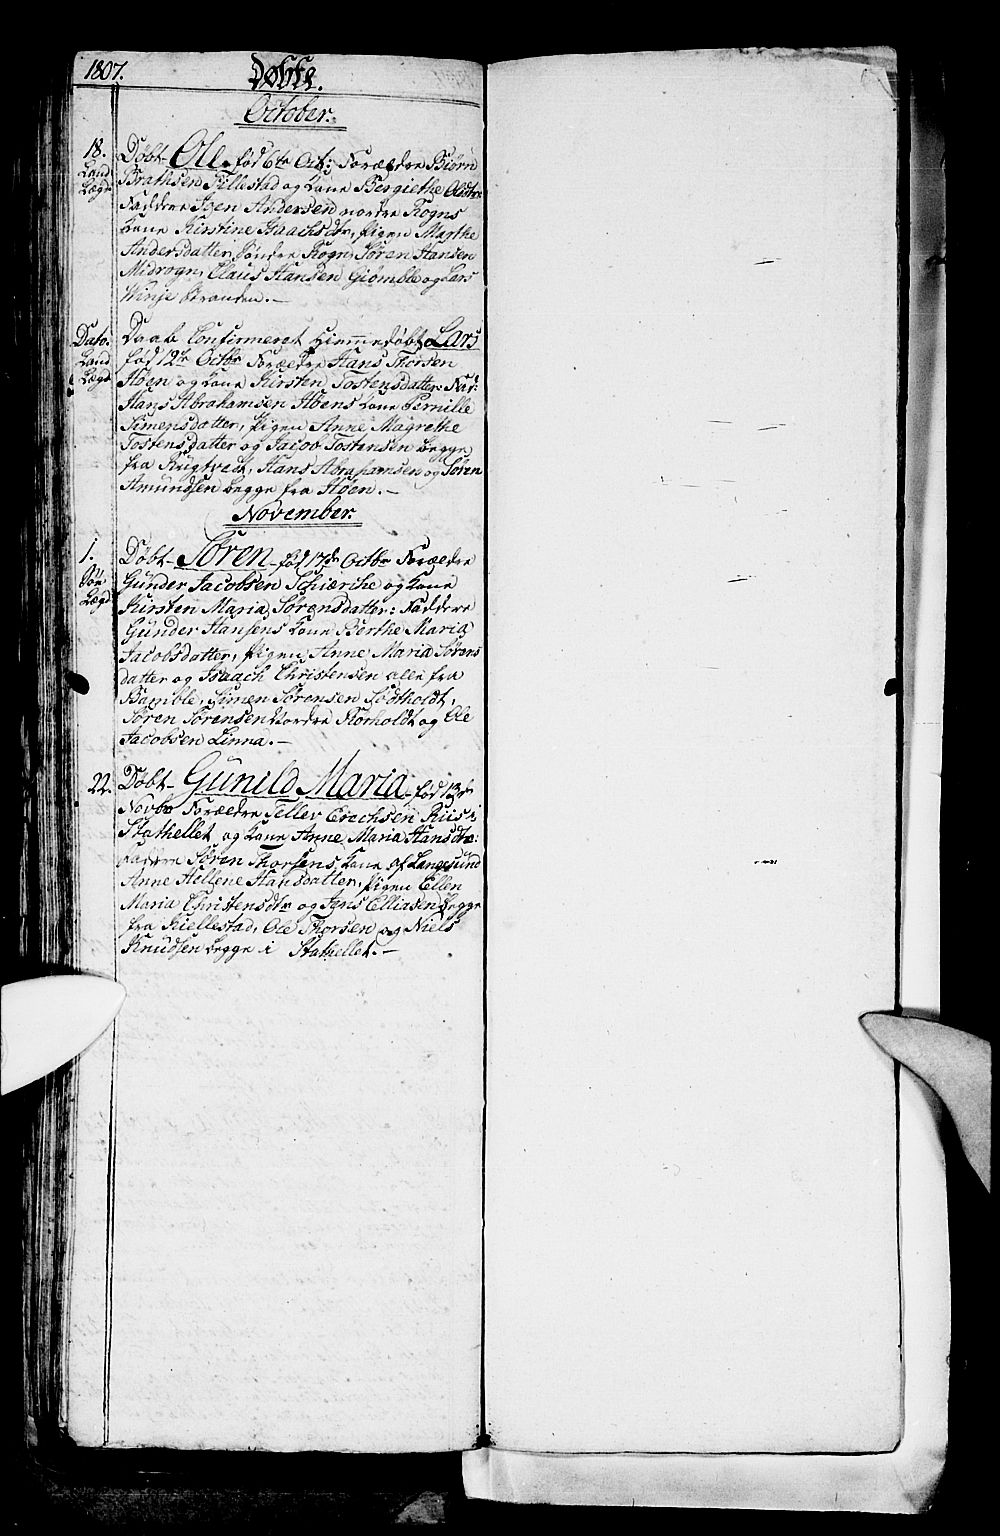 1807. Døbte.
October.
18. Døbt Ole, fød 6te Oct: Forældre Biørn
Land Brathsen Tillestad og Kone Bergiethe Olsdtr
Lægd Faddere Joen Andersen nordre Rogns
Kone Kirstine Isaachsdtr, Pigen Marthe
Andersdatter, Søndre Rogn, Søren Hansen
Midrogn, Claus Hansen Giømble og Lars
Winje Stranden.-
Dato. Daab Confirmeret Hiemmedøbt Lars
Land fød 12te Octbr Forældre Hans Thorsen
Lægd Aaen og Kone Kirsten Tostensdatter: Fad:
Hans Abrahamsen Aaens Kone Pernille
Simensdatter, Pigen Anne Magrethe
Tostensdatter og Jacob Tostensen begge
fra Rugtvedt, Hans Abrahamsen og Søren
Amundsen begge fra Aaen.-
November.
1. Døbt Søren fød 17de Octbr Forældre
Søe Gunder Jacobsen Schierche og Kone
Lægd Kirsten Maria Sørensdatter: Faddere
Gunder Hansens Kone Berthe Maria
Jacobsdatter, Pigen Anne Maria Sørens
datter og Isaach Christensen alle fra
Bamble, Simen Sørensen Sødtholdt,
Søren Sørensen Nordre Korholdt og Ole
Jacobsen Linna.-
22. Døbt Gunild Maria, fød 13de
Novbr Forældre Tellev Erichsen Riis i
Stathellet og Kone Anne Maria Hansdtr:
Faddere Søren Thorsens Kone af Langesund
Anne Hellene Hansdatter, Pigen Ellen
Maria Christensdtr og Jens Elliasen begge
fra Kiellestad, Ole Thorsen og Niels
Knudsen begge i Stathellet.-